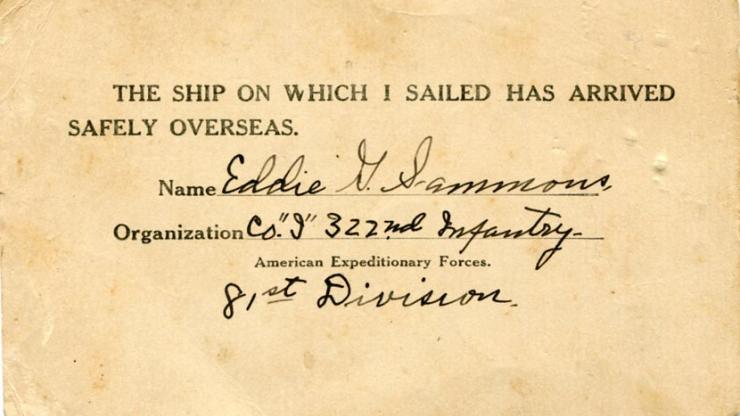 THE SHIP ON WHICH I SAILED HAS ARRIVED
SAFELY OVERSEAS.
Name Eddie G. Sammons
Organization Co. "I" 322nd Infantry
American Expeditionary Forces.
81st Division.